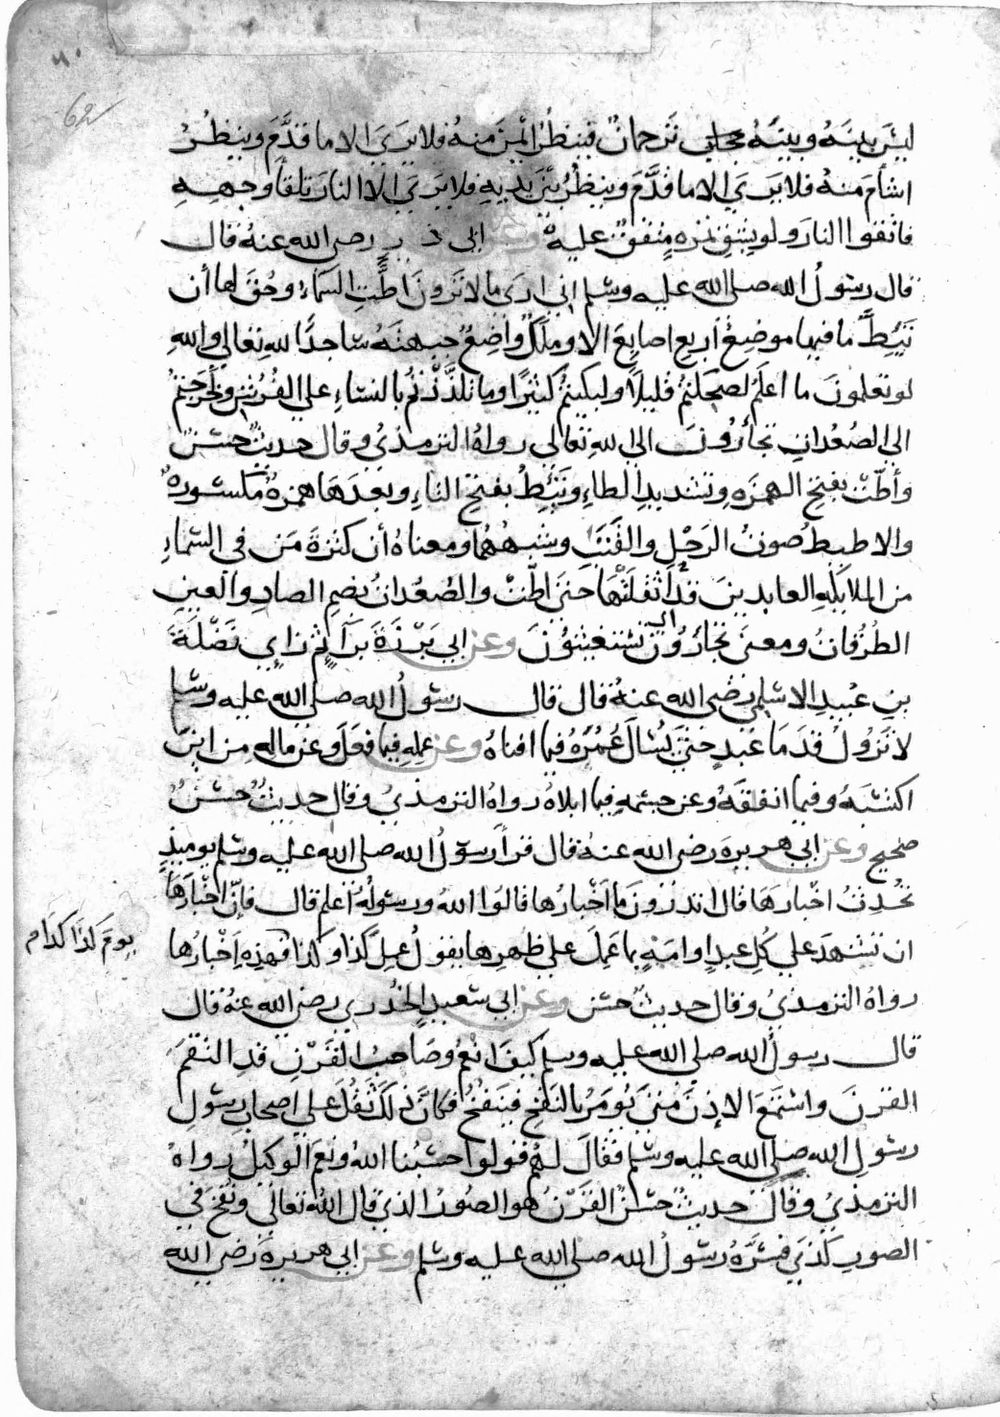 ٦٠
62
ليس بينه وبينه ترجمان فينظر أيمن منه فلا يرى الا ما قدم وينظر
اشأم منه فلا يرى الا ما قدم وينظر بين يديه فلا يرى الا النار تلقاء وجهه
فاتقوا النار ولو بشق تمرة متفق عليه وعن ابي ذر رضي الله عنه قال
قال رسول الله صلى الله عليه وسلم اني ارى ما لا ترون اطت السماء وحق لها أن
تئط ما فيها موضع أربع اصابع الا وملك واضع جبهته ساجدا لله تعالى والله
لو تعلمون ما اعلم لضحكتم قليلا ولبكيتم كثيرا وما تلذذتم بالنساء على الفرش ولخرجتم
الى الصعدات تجأرون الى الله تعالى رواه الترمذي وقال حديث حسن
وأطت بفتح الهمزه وتشديد الطاء وتئط بفتح التاء وبعدها همزة مكسورة
والاطيط صوت الرحل والقتب وشبههما ومعناه أن كثرة من في السماء
من الملايكة العابدين قد أثقلتها حتى اطت والصعدات بضم الصاد والعين
الطرقات ومعنى تجأرون تستغيثون وعن ابي برزة براء ثم زاي نضلة
بن عبيد الاسلمي رضي الله عنه قال قال رسول الله صلى الله عليه وسلم
لا تزول قدما عبد حتى يسأل عن عمره فيما افناه وعن عمله فيما فعل وعن ماله من اين
اكتسبه وفيما انفقه وعن جسمه فيما ابلاه رواه الترمذي وقال حديث حسن
صحيح وعن ابي هريرة رضي الله عنه قال قرأ رسول الله صلى الله عليه وسلم يوميذ
تحدث اخبارها قال اتدرون ما أخبارها قالوا الله ورسوله أعلم قال فإن اخبارها
ان تشهد على كل عبد او امة بما عمل على ظهرها يقول عمل كذا وكذا فهذه أخبارها
يوم كذا كذا م
رواه الترمذي وقال حديث حسن وعن ابي سعيد الخدري رضي الله عنه قال
قال رسول الله صلى الله عليه وسلم كيف انعم وصاحب القرن قد التقم
القرن واستمع الاذن متى يؤمر بالنفخ فينفخ فكأن ذلك ثقل على اصحاب رسول
رسول الله صلى الله عليه وسلم فقال لهم قولوا حسبنا الله ونعم الوكيل رواه
الترمذي وقال حديث حسن القرن هو الصور الذي قال الله تعالى ونفخ في
الصور كذي فسره رسول الله صلى الله عليه وسلم وعن ابي هريرة رضي الله